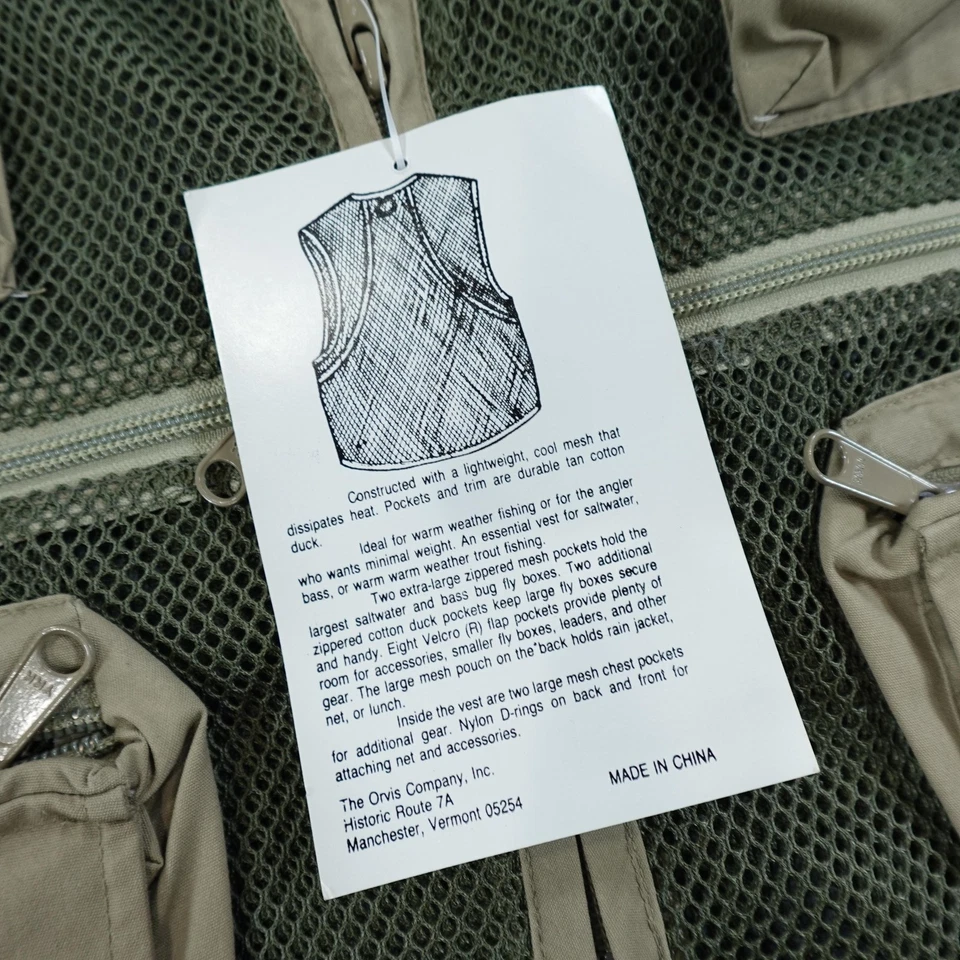 Constructed with a lightweight, cool mesh that
dissipates heat. Pockets and trim are durable tan cotton
duck.
Ideal for warm weather fishing or for the angler
who wants minimal weight. An essential vest for saltwater,
bass, or warm warm weather trout fishing.
Two extra-large zippered mesh pockets hold the
largest saltwater and bass bug fly boxes. Two additional
zippered cotton duck pockets keep large fly boxes secure
and handy. Eight Velcro (R) flap pockets provide plenty of
room for accessories, smaller fly boxes, leaders, and other
gear. The large mesh pouch on the back holds rain jacket,
net, or lunch.
Inside the vest are two large mesh chest pockets
for additional gear. Nylon D-rings on back and front for
attaching net and accessories.
The Orvis Company, Inc.
Historic Route 7A
Manchester, Vermont 05254
MADE IN CHINA